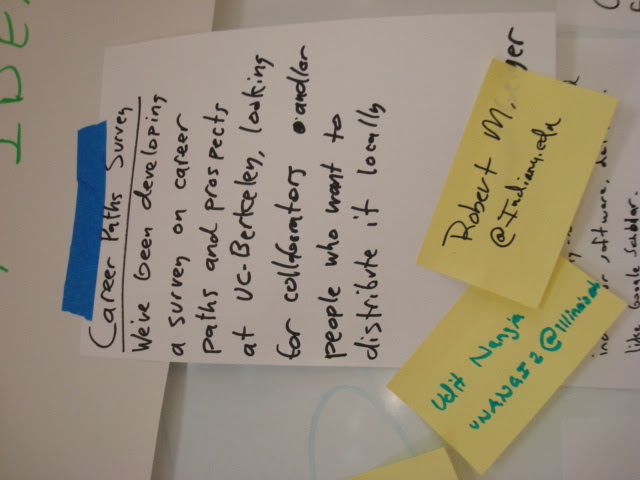 IDE
Career Paths Survey
We've been developing
a survey on career
paths and prospects
at UC-Berkeley, looking
for collaborators and/or
people who want to
distribute it locally
Udit Nangia
UNANGI2@Illinois.edu
Robert M.
@Indiana.edu
ger
software,
like Google Scholar.